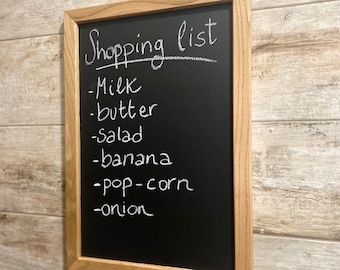 Shopping list
-Milk
-butter
-salad
-banana
-pop-corn
-onion